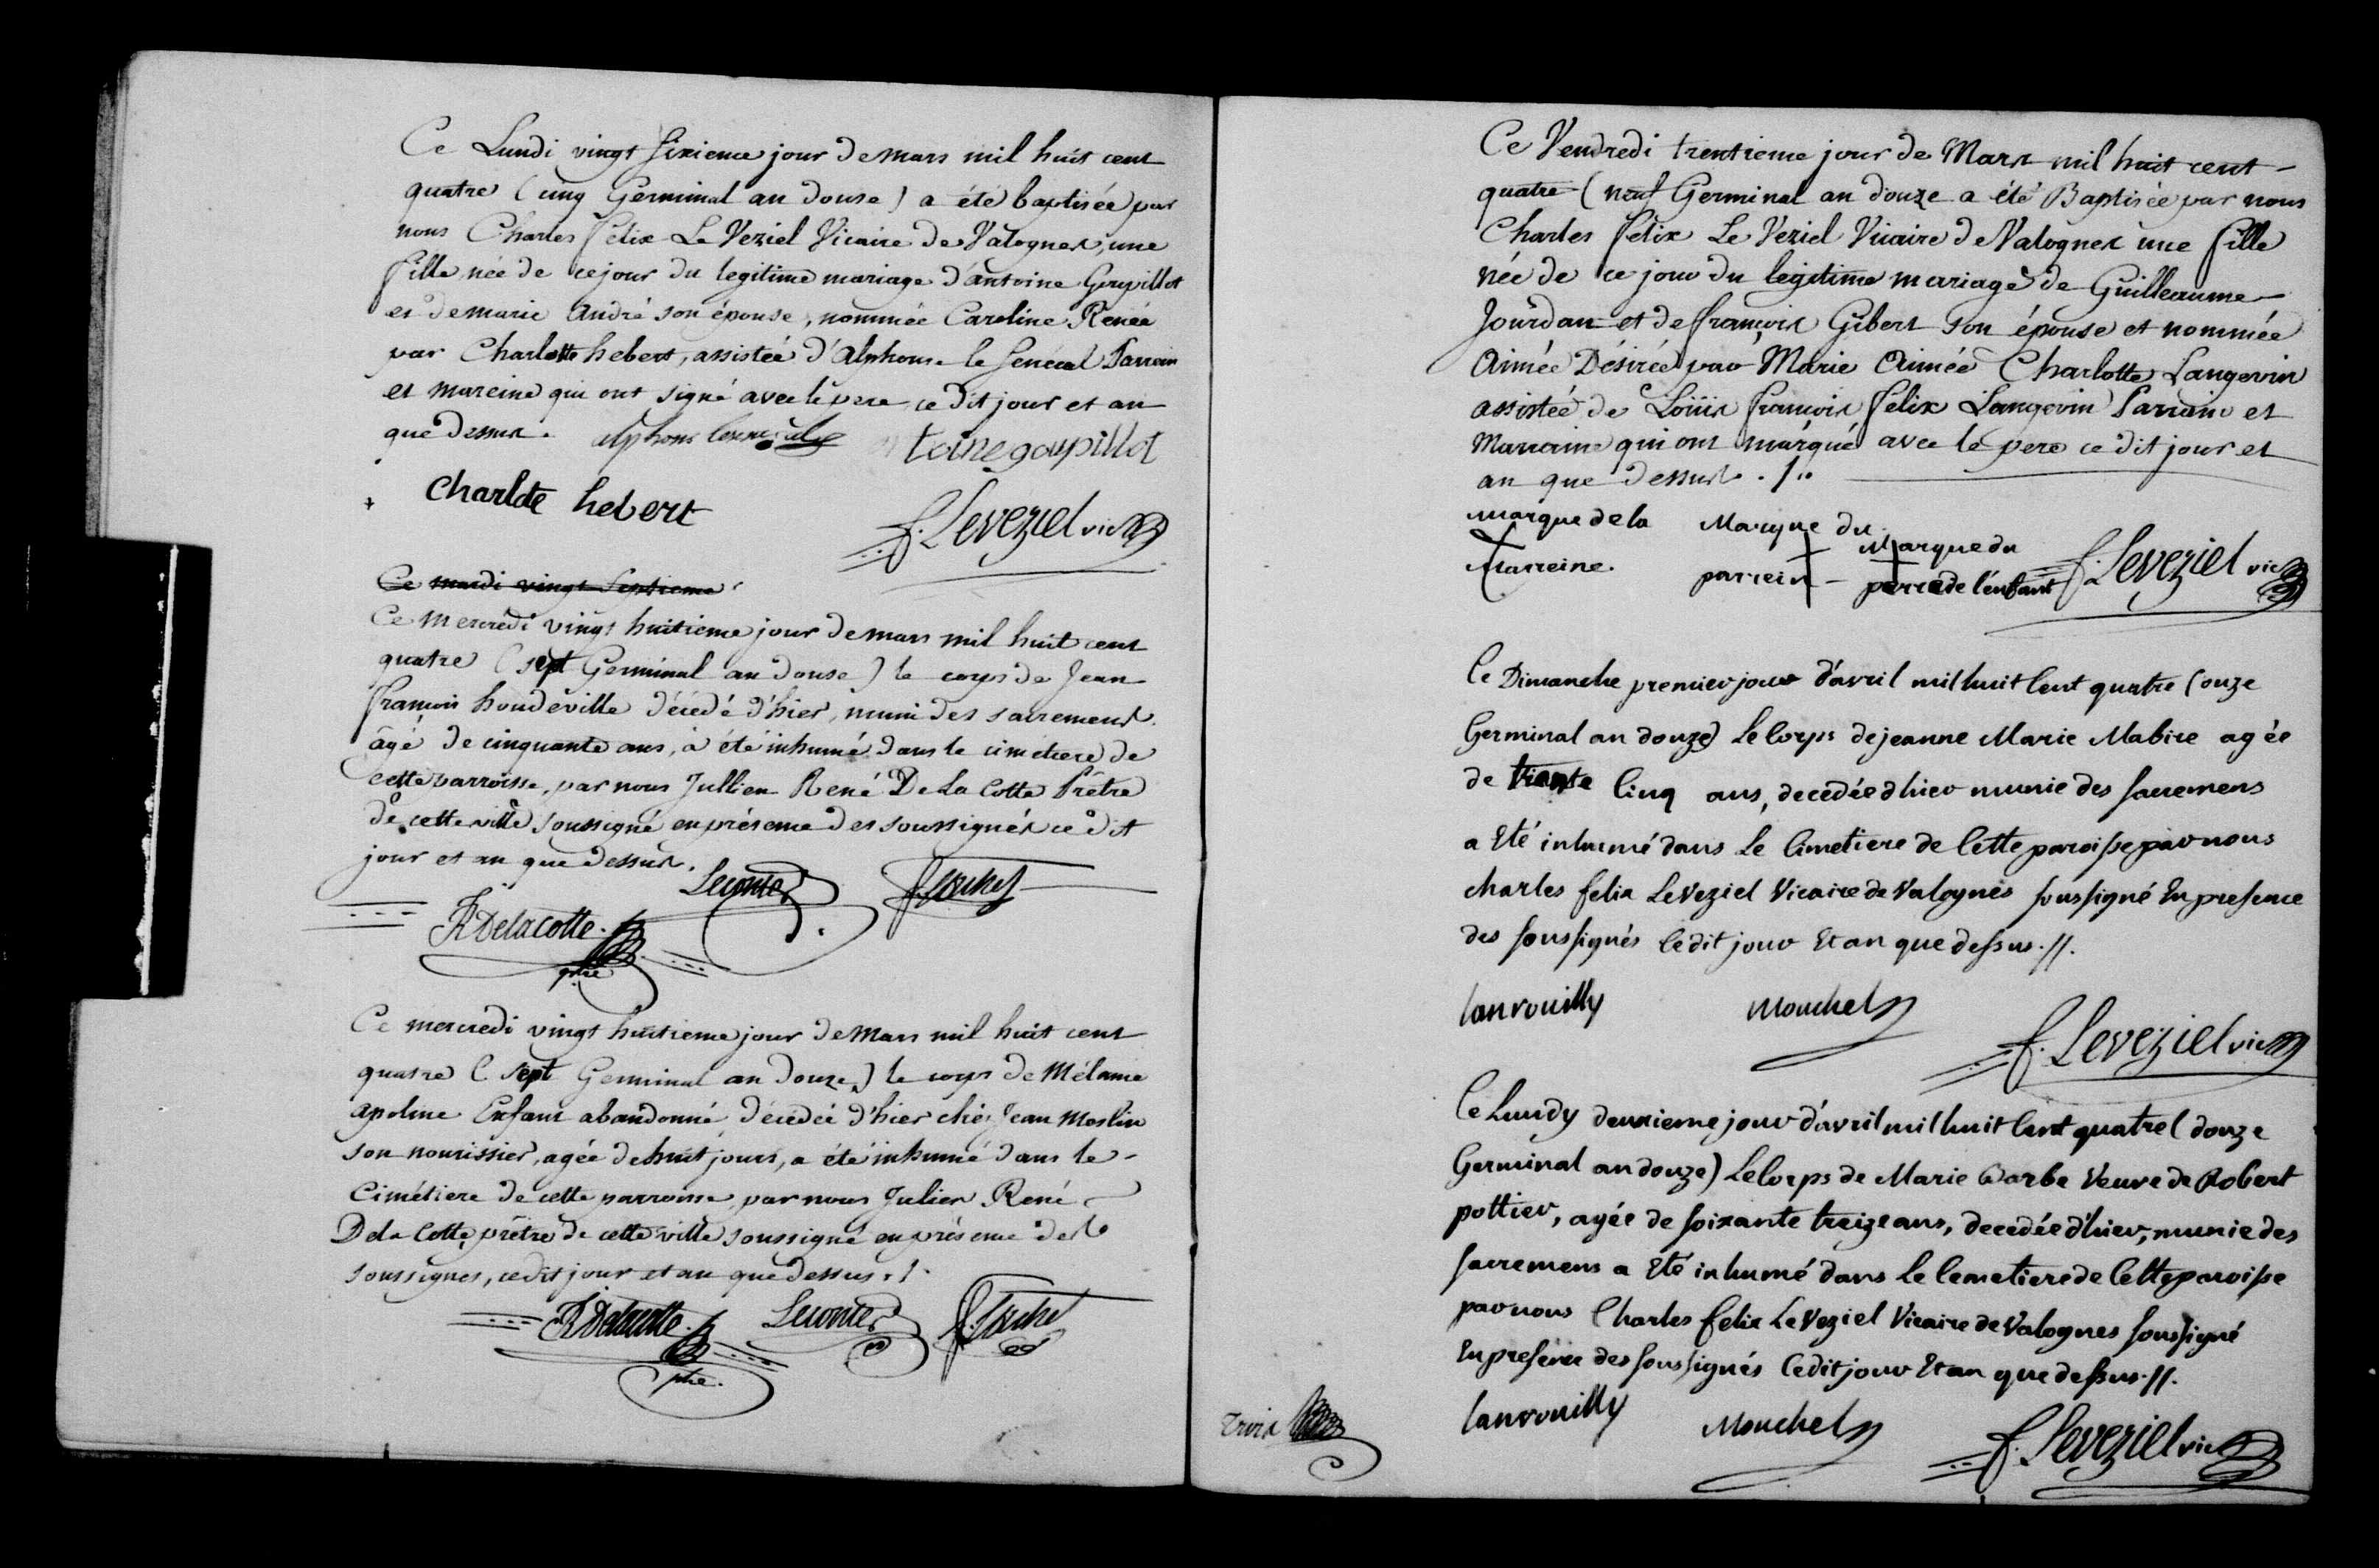 Ce Lundi vingt sixieme jour de mars mil huit cent
quatre (cinq Germinal an douse) a été baptisée par
nous Charles félix Le Veziel Vicaire de Valognes, une
fille née de ce jour du legitime mariage d'antoine Goupillot
et de marie André son épouse, nommée Caroline Renée
par Charlotte hebert, assistée d'Alphonse le Senécal Parrain
et mareine qui ont signé avec le pere ce dit jour et an
que dessus. alphons
toine goupillot
Charlote hebert
f. Leveziel vic
Ce mardi vingt Septieme
Ce mercredi vingt huitieme jour de mars mil huit cent
quatre (sept Germinal an douse) le corps de Jean
françois houdeville décédé d'hier, muni des sacrements.
âgé de cinquante ans, a été inhumé dans le cimetiere de
cette parroisse, par nous Jullien René De La Cotte Prêtre
de cette ville soussigné en présence des soussignés ce dit
jour et an que dessus.
Leconte
JR Delacotte
ptre
Ce mercredi vingt huitieme jour de Mars mil huit cent
quatre (sept Germinal an douze) le corps de Mélanie
apoline Enfant abandonné, décédée d'hier chéz Jean Meslin
son nourissier, agée de huit jours, a été inhumé dans le
Cimétiere de cette parroisse par nous Julien René
De la Cotte, prêtre de cette ville soussigné en présence des
soussignes, ce dit jour et an que dessus ./.
JR Delacotte Leconte
ptre.
Ce Vendredi trentieme jour de Mars mil huit cent
quatre (neuf Germinal an douze a été Baptisée par nous
Charles félix Le Veziel Vicaire de Valognes une fille
née de ce jour du legitime mariage de Guilleaume
Jourdan et de françois Gibert son épouse et nommée
Aimée Désirée par Marie Aimée Charlotte Langevin
assistée de Loüis françois félix Langevin Parrain et
Marraine qui ont marqué avec le pere ce dit jour et
an que dessus ./.
marque de la Marque du
Marque du
Marreine. parrein perre de l'enfant f. Leveziel vic
Ce Dimanche premier jour d'avril mil huit Cent quatre (onze
Germinal an douze) Le Corps de jeanne Marie Mabire agée
de trente Cinq ans, decedée d'hier munie des sacremens
a Eté inhumé dans Le Cimetiere de Cette paroisse par nous
charles felix Le Veziel Vicaire de Valognes soussigné En presence
des soussignés Cedit jour Et an que dessus.//.
Lanrouilly Mouchel
f. Leveziel vic
Ce Lundy deuxieme jour d'avril mil huit Cent quatre (douze
Germinal an douze) Le Corps de Marie Barbe Veuve de Robert
pottier, agée de soixante treize ans, decedée d'hier, munie des
sacremens a Eté inhumé dans Le Cemetiere de Cette paroisse
par nous Charles felix Le Veziel Vicaire de Valognes soussigné
En presence des soussignés Cedit jour Et an que dessus.//.
Lanrouilly Mouchel
f. Leveziel vic
trois